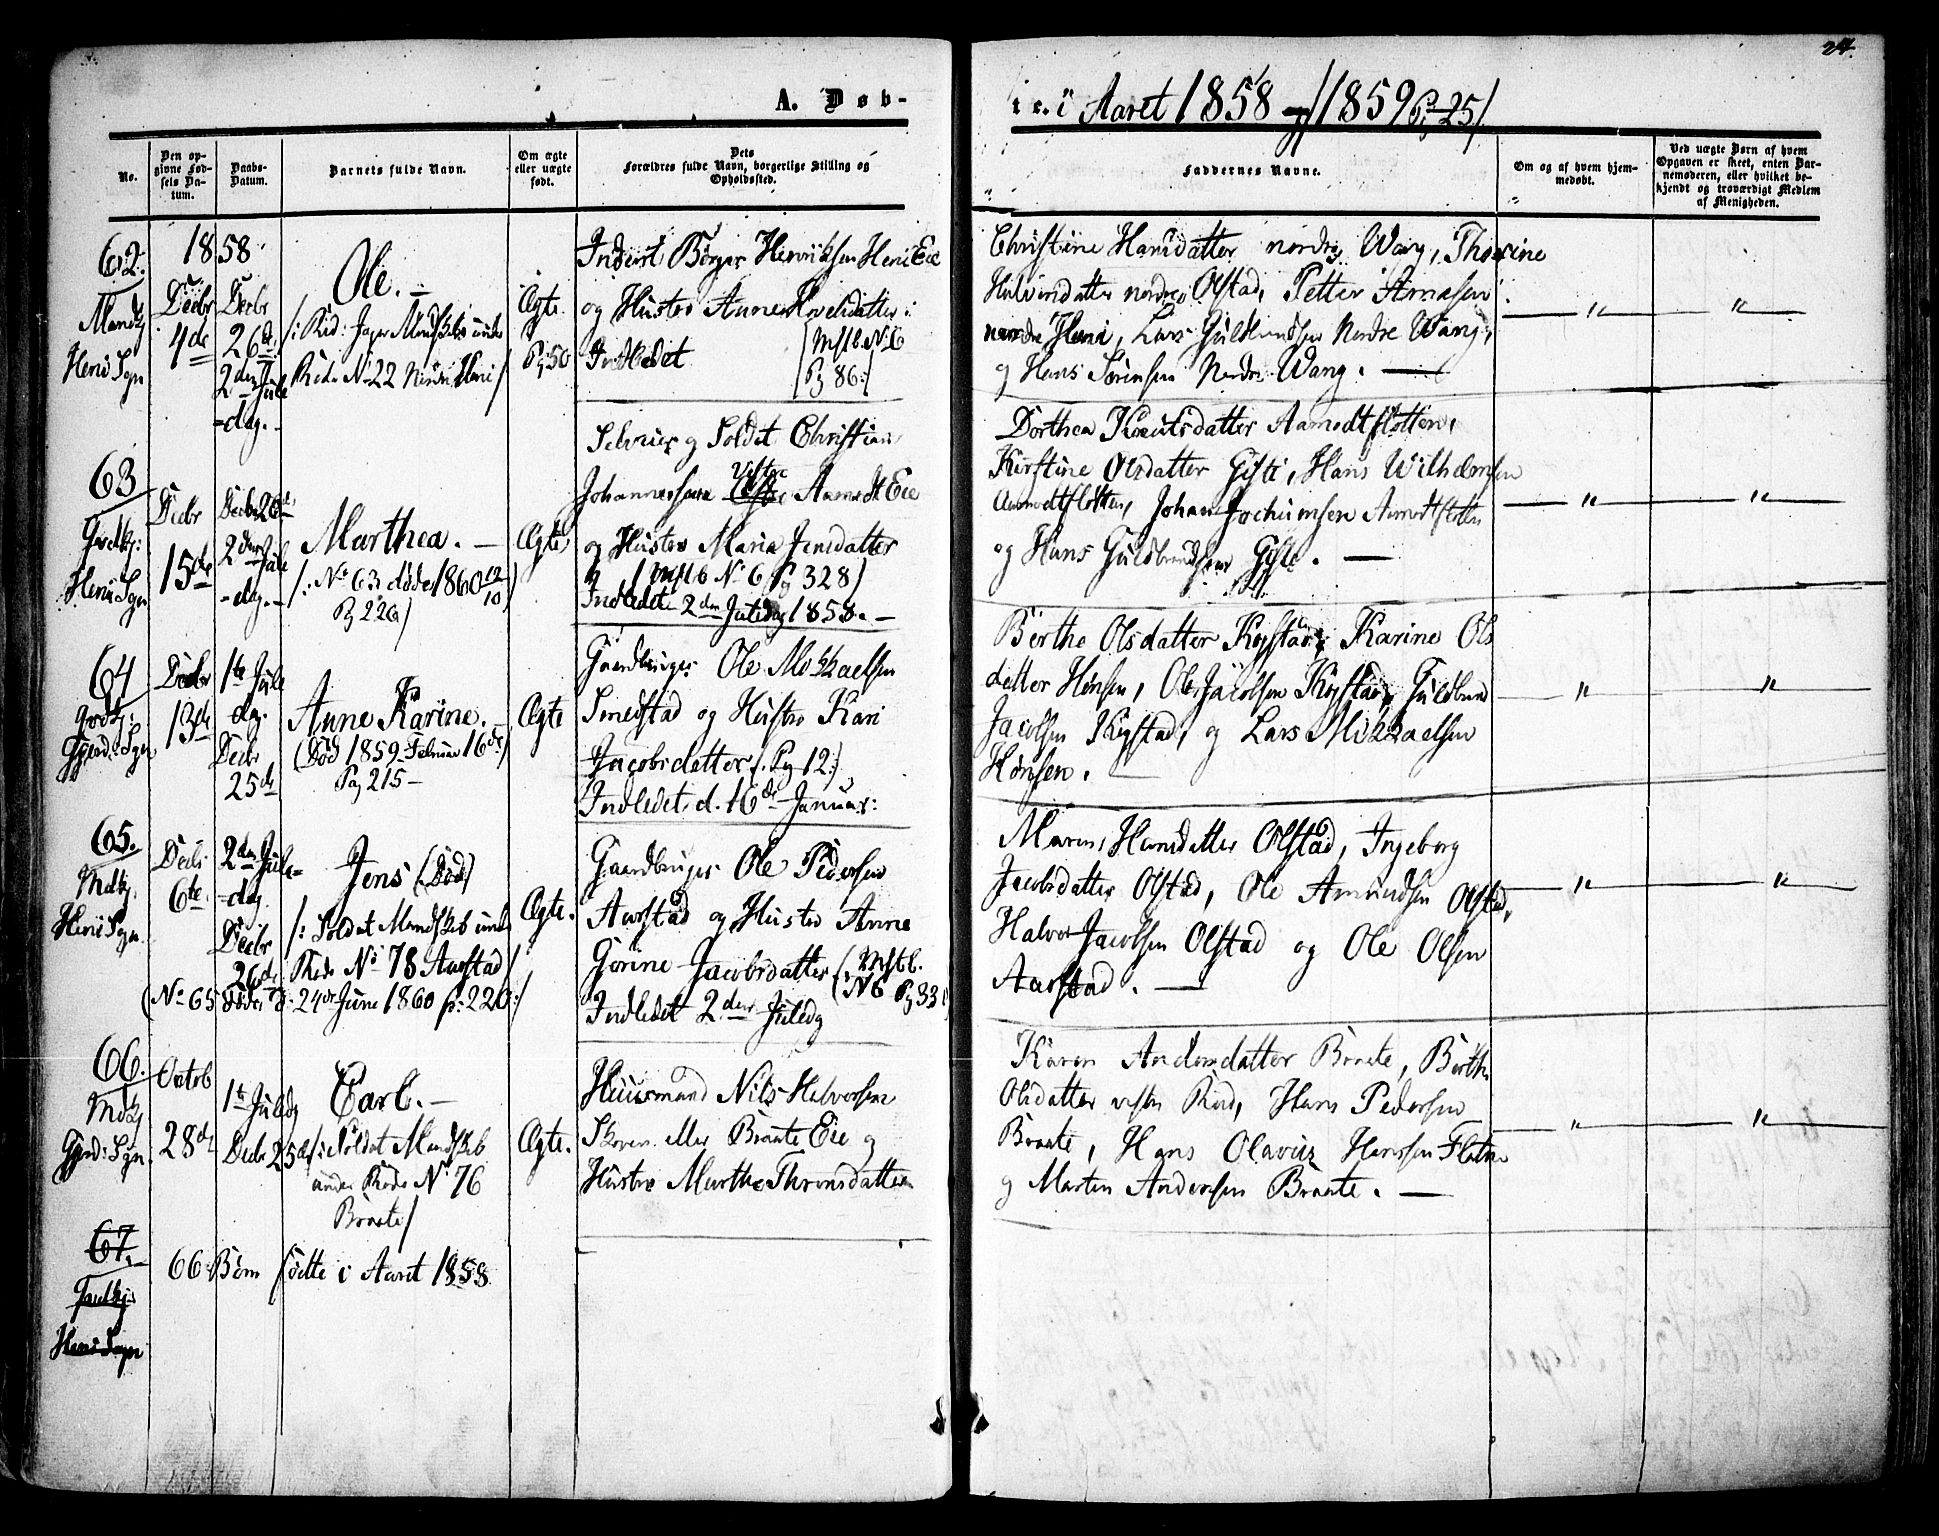 24.
A. Døb-
te. i Aaret 1858 - 1859 Pg 25/
No.
Den op-
givne Fød-
sels Da-
tum.
Daabs-
Datum.
Barnets fulde Navn.
Om ægte
eller uægte
født.
Dets
Forældres fulde Navn, borgerlige Stilling og
Opholdssted.
Faddernes Navne.
Om og af hvem hjem-
medøbt.
Ved uægte Børn af hvem
Opgaven er skeet, enten Bar-
nemoderen, eller hvilket be-
kjendt og troværdigt Medlem
af Menigheden.
62.
Mandkj
Heni Sogn
1858
Decbr
4de
Decbr
26de
2den Jule
-dag.-
Ole. -
/: Rid: Jæger Mandskab under
Rode No 22 Nordre Heni/
Ægte
Pg 50
Inderst Børger Henriksen Heni Eie
og Hustro Anne Hovelsdatter:
Indledet
/Mstb. No 6
Pg 86:/
Christine Hansdatter nordre Wang, Thorine
Halvorsdatter nordre Olstad, Petter Arnesen
nordre Heni, Lars Guldbrandsen Nordre Wang,
og Hans Sørensen Nordre Wang. —
— " —
— " —
63
Qvdkj:
Heni Sogn
Decbr
15de
Decbr 26de
2den Jule
-dag.-
Marthea. -
/: No 63 døde 1860 12/10
Pg 220/
Ægte
Selveier og Soldat Christian
Johannessen Vestre Aamodt Eie
og Hustro Maria Jensdatter
/Mstb No 6 Pg 328/
Indledet 2den Juledag 1858. -
Dorthea Knutsdatter Aamodtflotten,
Kirstine Olsdatter Gisti, Hans Wilhelmsen
Aamodtflotten, Johan Jochumsen Aamodtflotten
og Hans Guldbrandsen Giste. —
— " —
— " —
64
Qvdkj:
Gjerd: Sogn
Decbr
13de
1ste Jule
dag.
Decbr
25de
Anne Karine. -
(Død 1859 Februar 16de:)
Pag 215 -
Ægte
Gaardbruger Ole Mikkaelsen
Smedstad og Hustro Kari
Jacobsdatter /: Pg 12:/
Indledet d. 16de Januar:
Berthe Olsdatter Kogstad, Karine Ols
datter Hønsen, Ole Jacobsen Kogstad, Guldbrand
Jacobsen Kogstad, og Lars Mikkaelsen
Hønsen. —
— " —
— " —
65.
Mdkj.
Heni Sogn
Decb:
6te.
2den Jule-
=dag.
Decbr
26de
Jens (Død)
/: Soldat Mandskab under
Rode No 78 Aarstad/
(No 65 døde d: 24de Juni 1860 p: 220:/
Ægte.
Gaardbruger Ole Pedersen
Aarstad og Hustro Anne
Gorine Jacobsdatter (Mstb.
No 6 Pg 331)
Indledet 2den Juledg
Maren Hansdatter Olstad, Ingeborg
Jacobsdatter Olstad, Ole Amundsen Olstad,
Halvor Jacobsen Olstad og Ole Olsen
Aarstad. —
— " —
— " —
66.
Mdkj
Gjerd: Sogn
Octob
28de
1ste Juledg
Decbr 25de
Carl. -
/: Soldat Mandskab
under Rode No 76
Braate/
Ægte.
Huusmand Nils Halvorsen
Skoven eller Braate Eie og
Hustro Marthe Thronsdatter
Karen Andersdatter Braate, Berthe
Olsdatter vestre Rud, Hans Pedersen
Braate, Hans Olavius Hanssen Flatner
og Morten Andersen Braate. —
— " —
— " —
67.
Heni Sogn
66 Børn fødte i Aaret 1858